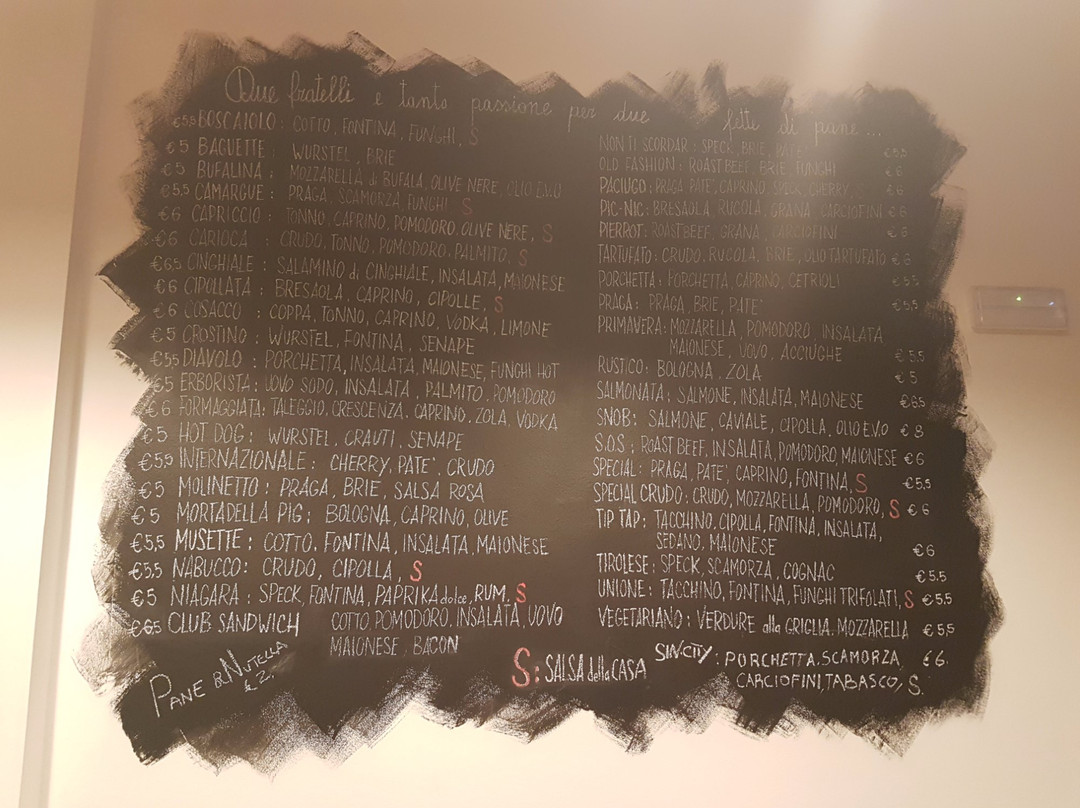 Due fratelli e tanta passione per due fette di pane...
€5,5 BOSCAIOLO: COTTO, FONTINA, FUNGHI, S
€5 BAGUETTE: WURSTEL, BRIE
€5 BUFALINA: MOZZARELLA di BUFALA, OLIVE NERE, OLIO E.V.O
€5,5 CAMARGUE: PRAGA, SCAMORZA, FUNGHI S
€6 CAPRICCIO: TONNO, CAPRINO, POMODORO, OLIVE NERE, S
€6 CARIOCA: CRUDO, TONNO, POMODORO, PALMITO, S
€6,5 CINGHIALE: SALAMINO di CINGHIALE, INSALATA, MAIONESE
€6 CIPOLLATA: BRESAOLA, CAPRINO, CIPOLLE, S
€6 COSACCO: COPPA, TONNO, CAPRINO, VODKA, LIMONE
€5 CROSTINO: WURSTEL, FONTINA, SENAPE
€5,5 DIAVOLO: PORCHETTA, INSALATA, MAIONESE, FUNGHI HOT
€5 ERBORISTA: UOVO SODO, INSALATA, PALMITO, POMODORO
€6 FORMAGGIATA: TALEGGIO, CRESCENZA, CAPRINO, ZOLA, VODKA
€5 HOT DOG: WURSTEL, CRAUTI, SENAPE
€5,5 INTERNAZIONALE: CHERRY, PATE', CRUDO
€5 MOLINETTO: PRAGA, BRIE, SALSA ROSA
€5 MORTADELLA PIG: BOLOGNA, CAPRINO, OLIVE
€5,5 MUSETTE: COTTO, FONTINA, INSALATA, MAIONESE
€5,5 NABUCCO: CRUDO, CIPOLLA, S
€5 NIAGARA: SPECK, FONTINA, PAPRIKA dolce, RUM, S
€6,5 CLUB SANDWICH COTTO, POMODORO, INSALATA, UOVO
MAIONESE, BACON
PANE & NUTELLA
€2,
NON TI SCORDAR: SPECK, BRIE, PATE' €5,5
OLD FASHION: ROASTBEEF, BRIE, FUNGHI €6
PACIUGO: PRAGA, PATE', CAPRINO, SPECK, CHERRY, S €6
PIC-NIC: BRESAOLA, RUCOLA, GRANA, CARCIOFINI €6
PIERROT: ROASTBEEF, GRANA, CARCIOFINI €6
TARTUFATO: CRUDO, RUCOLA, BRIE, OLIO TARTUFATO €6
PORCHETTA: PORCHETTA, CAPRINO, CETRIOLI €5,5
PRAGA: PRAGA, BRIE, PATE' €5,5
PRIMAVERA: MOZZARELLA, POMODORO, INSALATA
MAIONESE, UOVO, ACCIUGHE €5,5
RUSTICO: BOLOGNA, ZOLA €5
SALMONATA: SALMONE, INSALATA, MAIONESE €6,5
SNOB: SALMONE, CAVIALE, CIPOLLA, OLIO E.V.O €8
S.O.S: ROAST BEEF, INSALATA, POMODORO, MAIONESE €6
SPECIAL: PRAGA, PATE', CAPRINO, FONTINA, S €5,5
SPECIAL CRUDO: CRUDO, MOZZARELLA, POMODORO, S €6
TIP TAP: TACCHINO, CIPOLLA, FONTINA, INSALATA,
SEDANO, MAIONESE €6
TIROLESE: SPECK, SCAMORZA, COGNAC €5,5
UNIONE: TACCHINO, FONTINA, FUNGHI TRIFOLATI, S €5,5
VEGETARIANO: VERDURE alla GRIGLIA, MOZZARELLA €5,5
SIN-CITY: PORCHETTA, SCAMORZA, €6
CARCIOFINI, TABASCO, S.
S: SALSA della CASA